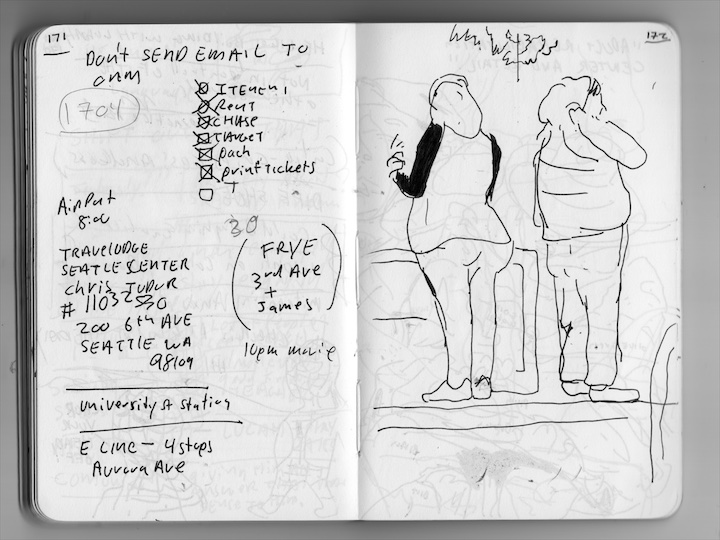 171
DON'T SEND EMAIL TO
1704
RENT
CHASE
TARGET
pack
print Tickets
+
AirPort
30
TRAVELODGE
SEATLE CENTER
Chris
# 11032530
200 6th AVE
SEATTLE WA
98109
(FRYE
3rd Ave
+
James)
10pm movie
University St Station
E LINE — 4 stops
Aurora Ave
172